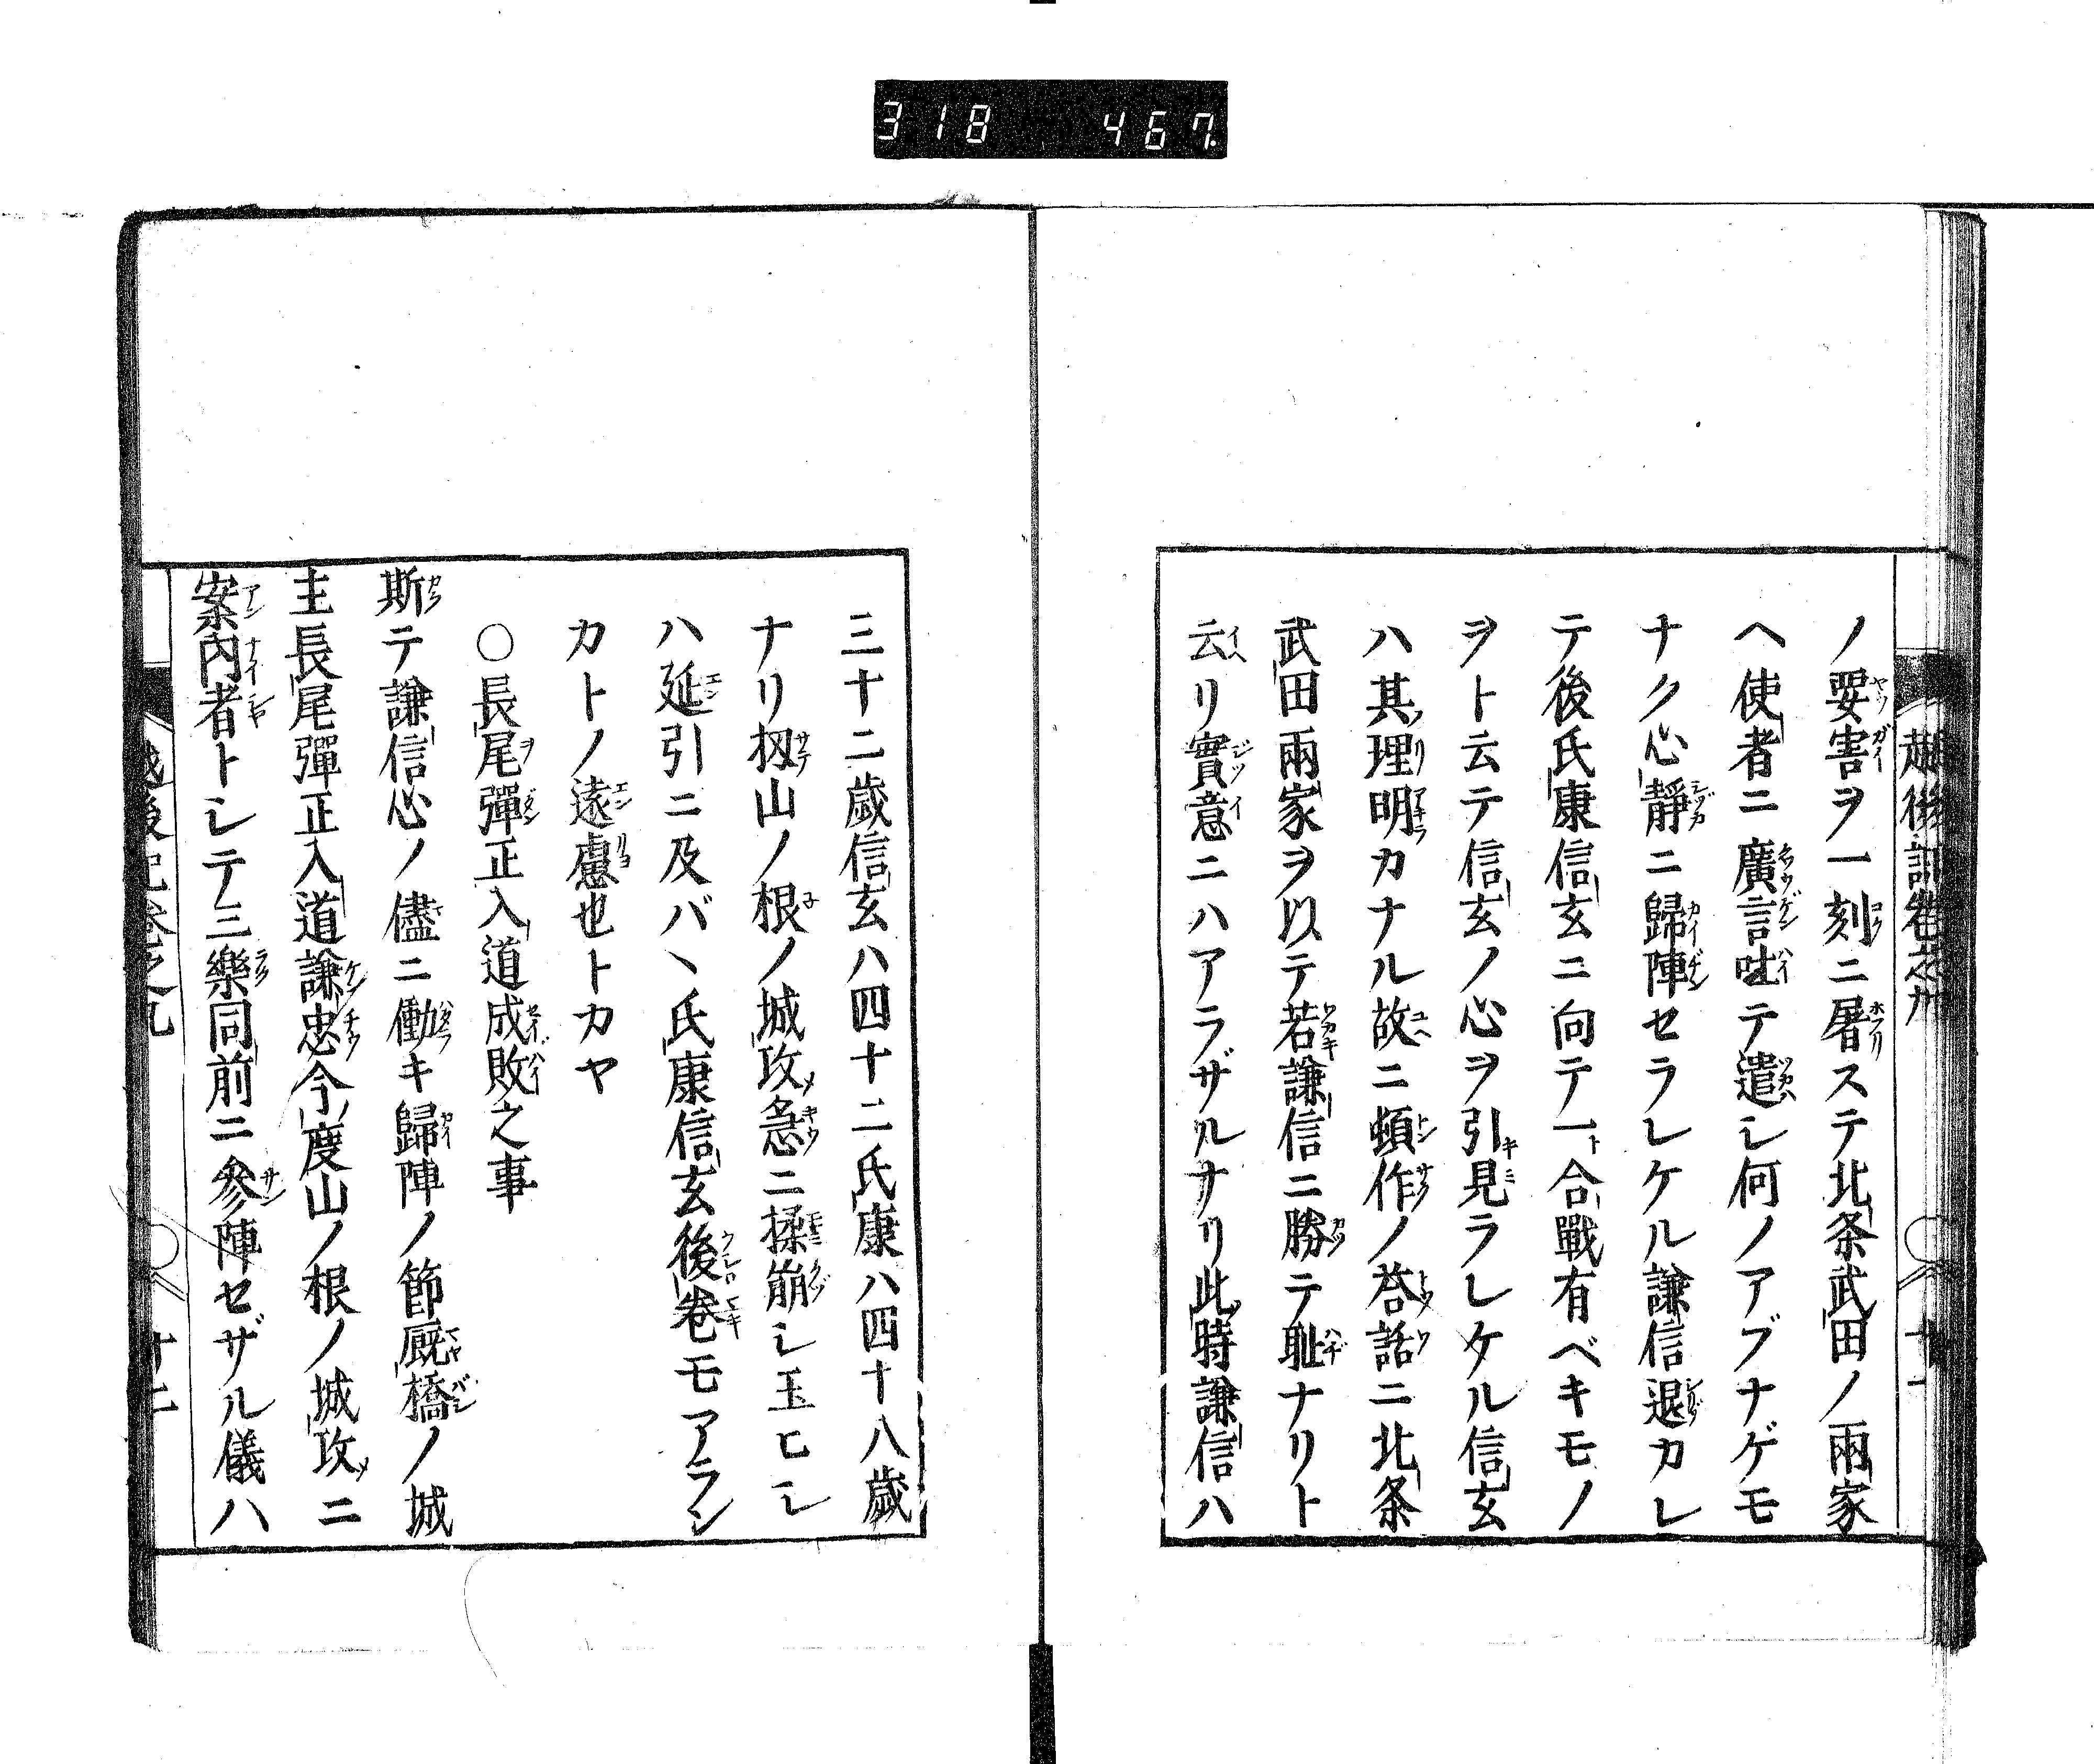 318 467.
ノ要害ヲ一刻ニ屠ステ北条武田ノ兩家
ヘ使者ニ廣言吐テ遣シ何ノアブナゲモ
ナク心靜ニ歸陣セラレケル謙信退カレ
テ後氏康信玄ニ向テ一合戰有ベキモノ
ヲト云テ信玄ノ心ヲ引見ラレケル信玄
ハ其理明カナル故ニ頓作ノ荅話ニ北条
武田兩家ヲ以テ若謙信ニ勝テ耻ナリト
云リ實意ニハアラザルナリ此時謙信ハ
三十二歳信玄ハ四十二氏康ハ四十八歳
ナリ扨山ノ根ノ城攻急ニ揉崩シ玉ヒシ
ハ延引ニ及バヽ氏康信玄後卷モアラン
カトノ遠慮也トカヤ
○長尾彈正入道成敗之事
斯テ謙信心ノ儘ニ働キ歸陣ノ節厩橋ノ城
主長尾彈正入道謙忠今度山ノ根ノ城攻ニ
案内者トシテ三樂同前ニ參陣セザル儀ハ